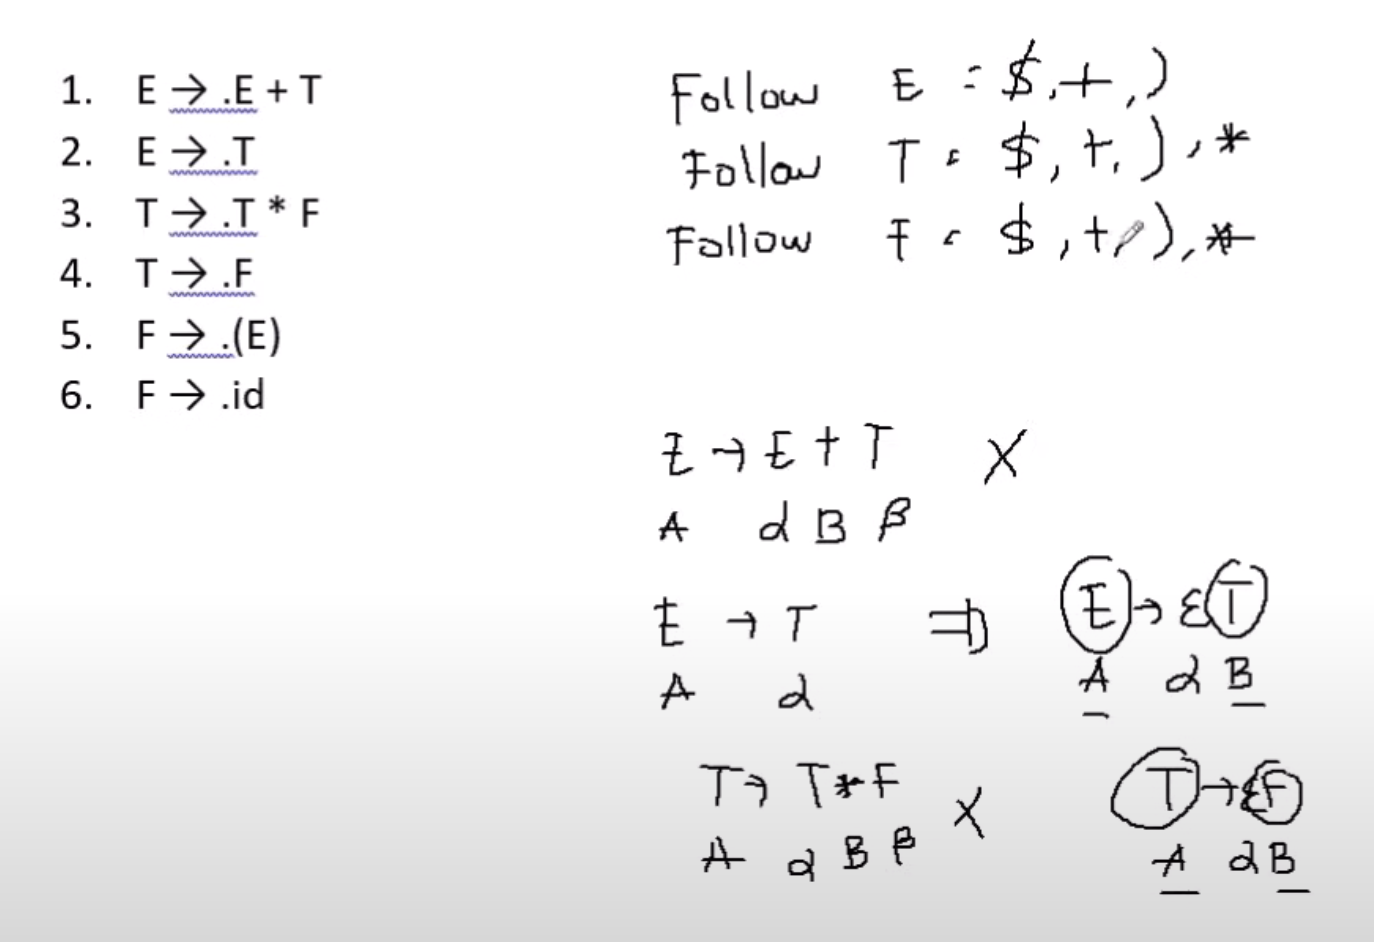 1. E → .E + T
2. E → .T
3. T → .T * F
4. T → .F
5. F → .(E)
6. F → .id
Follow E = $, +, )
Follow T = $, +, ), *
Follow F = $, +, ), *
E → E + T X
A α B β
E → T ⇒ E → ε T
A α A α B
T → T * F X T → ε F
A α B β A α B